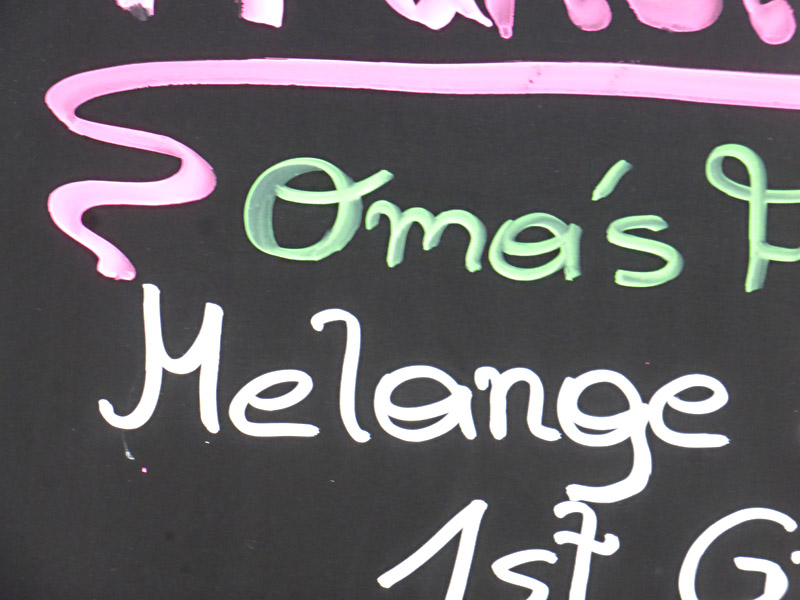 Oma's
Melange
1st